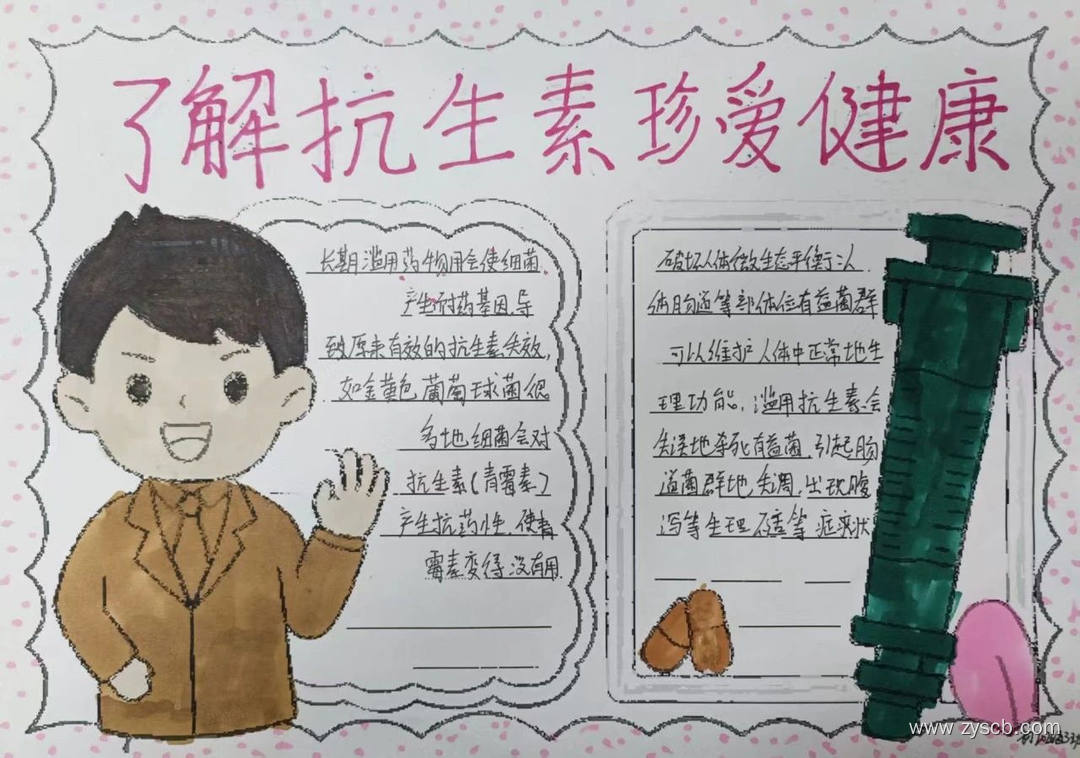 了解抗生素珍爱健康
长期滥用药物用会使细菌
产生耐药基因,导
致原来有效的抗生素失效,
如金黄色葡萄球菌很
多地细菌会对
抗生素(青霉素)
产生抗药性,使青
霉素变得没有用
破坏人体微生态平衡:人
体肠道等部体位有益菌群
可以维护人体中正常地生
理功能,滥用抗生素会
失误地杀死有益菌,引起肠
道菌群地失调,出现腹
泻等生理不适等症状
www.zyscb.com